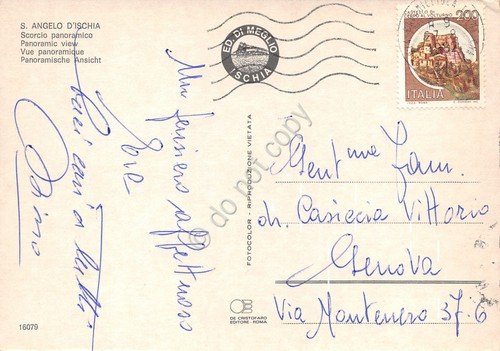 S. ANGELO D'ISCHIA
Scorcio panoramico
Panoramic view
Vue panoramique
Panoramische Ansicht
ED. DI MEGLIO
ISCHIA
200
ITALIA
Un pensiero affettuoso
cari a tutti
FOTOCOLOR - RIPRODUZIONE VIETATA
do not copy
Gent.me Fam.
Casiccia Vittorio
Genova
Via Montenero 37-6
DE CRISTOFARO
EDITORE - ROMA
16079